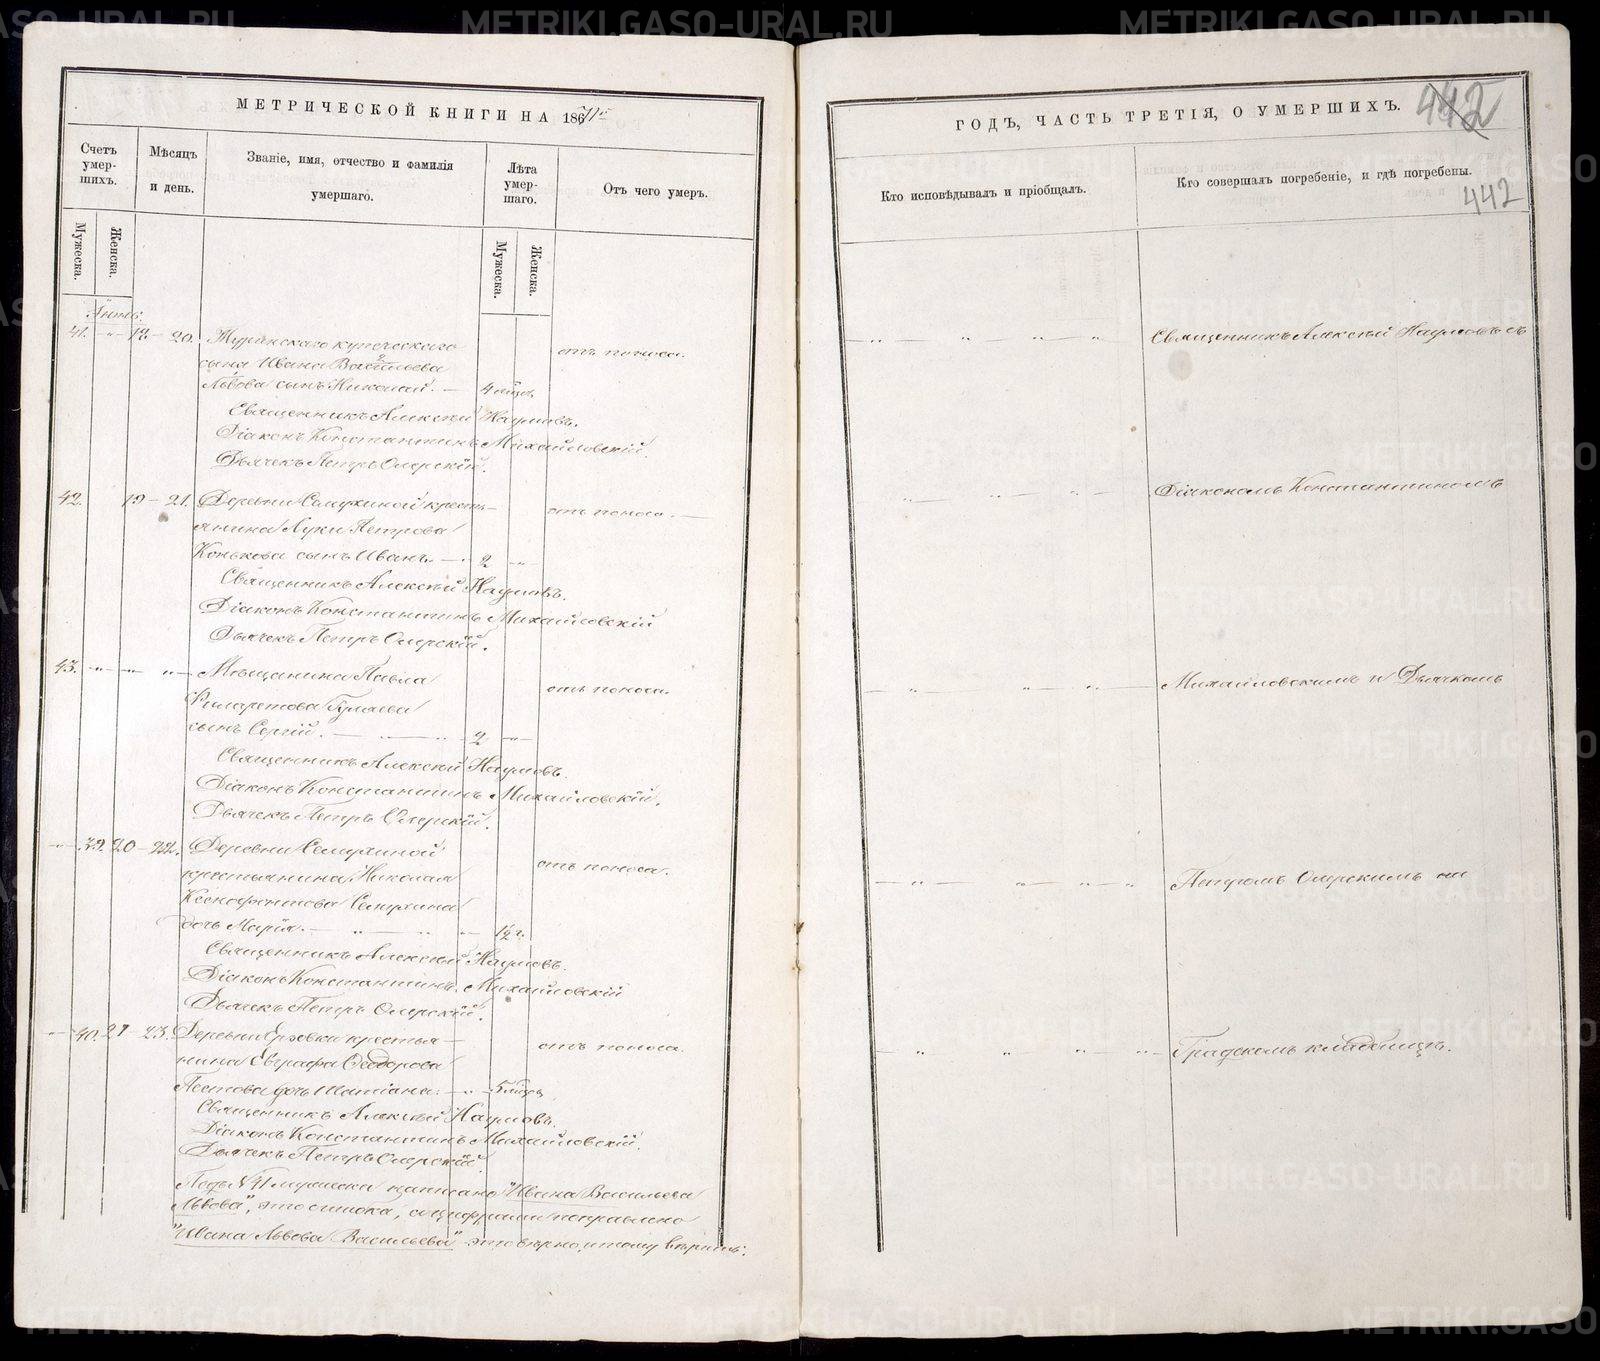 МЕТРИЧЕСКОЙ КНИГИ НА 186
ГОДЪ, ЧАСТЬ ТРЕТІЯ, О УМЕРШИХЪ.
442
442
Счетъ умер-шихъ.
Мужеска.
Женска.
Мѣсяцъ и день.
Званіе, имя, отчество и фамилія умершаго.
Лѣта умер-шаго.
Мужеска.
Женска.
Отъ чего умеръ.
Кто исповѣдывалъ и пріобщалъ.
Кто совершалъ погребеніе, и гдѣ погребены.
41. 18 20. купеческаго отъ поноса. Священникъ Алексѣй Наумовъ съ
сына Ивана Васильева
Львова сынъ Николай. 4 мѣсц.
Священникъ Алексѣй Наумовъ.
Діаконъ Константинъ Михайловскій.
Дьячекъ Петръ Озерскій.
42. 19 21. Деревни Семухиной кресть- отъ поноса. Діакономъ Константиномъ
янина Луки Петрова
Конькова сынъ Иванъ. 2
Священникъ Алексѣй Наумовъ.
Діаконъ Константинъ Михайловскій
Дьячекъ Петръ Озерскій.
43. Мѣщанина Павла отъ поноса. Михайловскимъ и Дьячкомъ
Филаретова
сынъ Сергій. 2
Священникъ Алексѣй Наумовъ.
Діаконъ Константинъ Михайловскій.
Дьячекъ Петръ Озерскій.
39. 20 22. Деревни Семухиной отъ поноса. Петромъ Озерскимъ на
крестьянина Николая
Ксенофонтова Семухина
дочь Марія. 1½ г.
Священникъ Алексѣй Наумовъ.
Діаконъ Константинъ Михайловскій
Дьячекъ Петръ Озерскій.
40. 21 23. Деревни Ерзовки крестья- отъ поноса. Градскомъ кладбищѣ.
нина Евграфа Ѳеодорова
Пестова дочь Татіана. 5 мѣсц.
Священникъ Алексѣй Наумовъ.
Діаконъ Константинъ Михайловскій.
Дьячекъ Петръ Озерскій.
Подъ № 41 мужеска написано "Ивана Васильева
Львова", это ошибка, а цифрами поправлено
"Ивана Львова Васильева" это вѣрно, и тому вѣрить.
METRIKI.GASO-URAL.RU